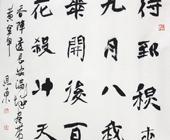 待到秋来
九月八我
花開後百
花殺冲天
香陣透長安滿城盡帶
黄金甲